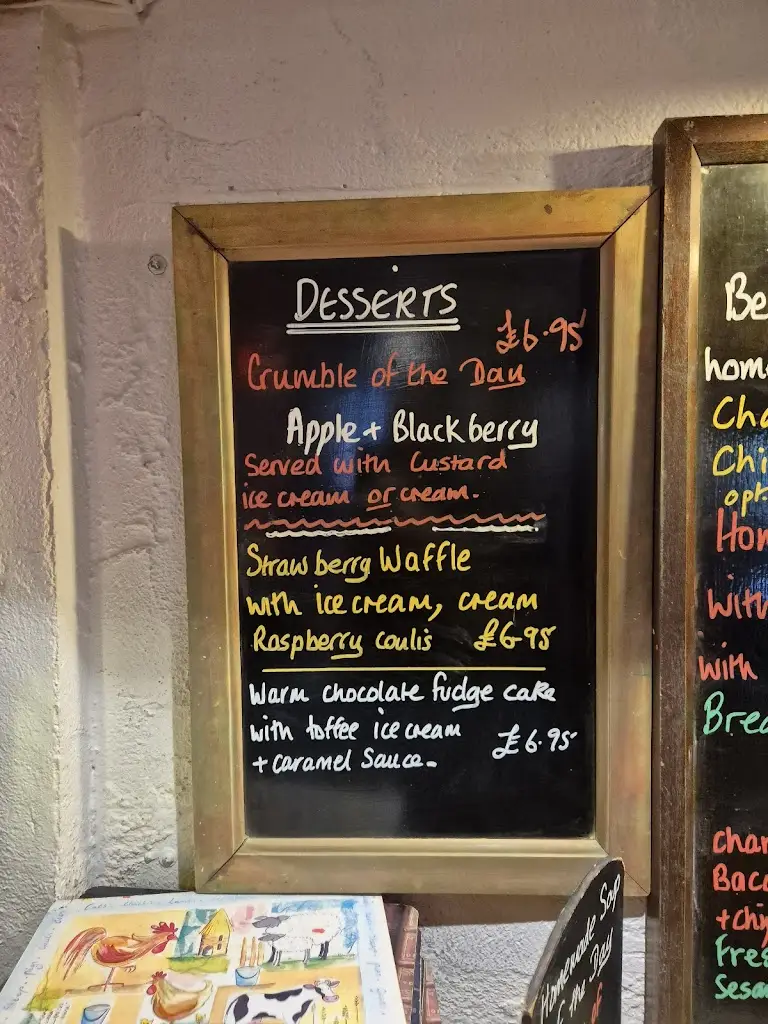 DESSERTS
£6.95
Crumble of the Day
Apple + Blackberry
Served with Custard
ice cream or cream.
Strawberry Waffle
with ice cream, cream
Raspberry coulis £6.95
Warm chocolate fudge cake
with toffee ice cream
+ caramel Sauce. £6.95
Homemade Soup
of the Day
of
Be
hom
Cha
Chi
opt
Hom
With
with
Brea
char
Baco
+chi
Fres
Sesa